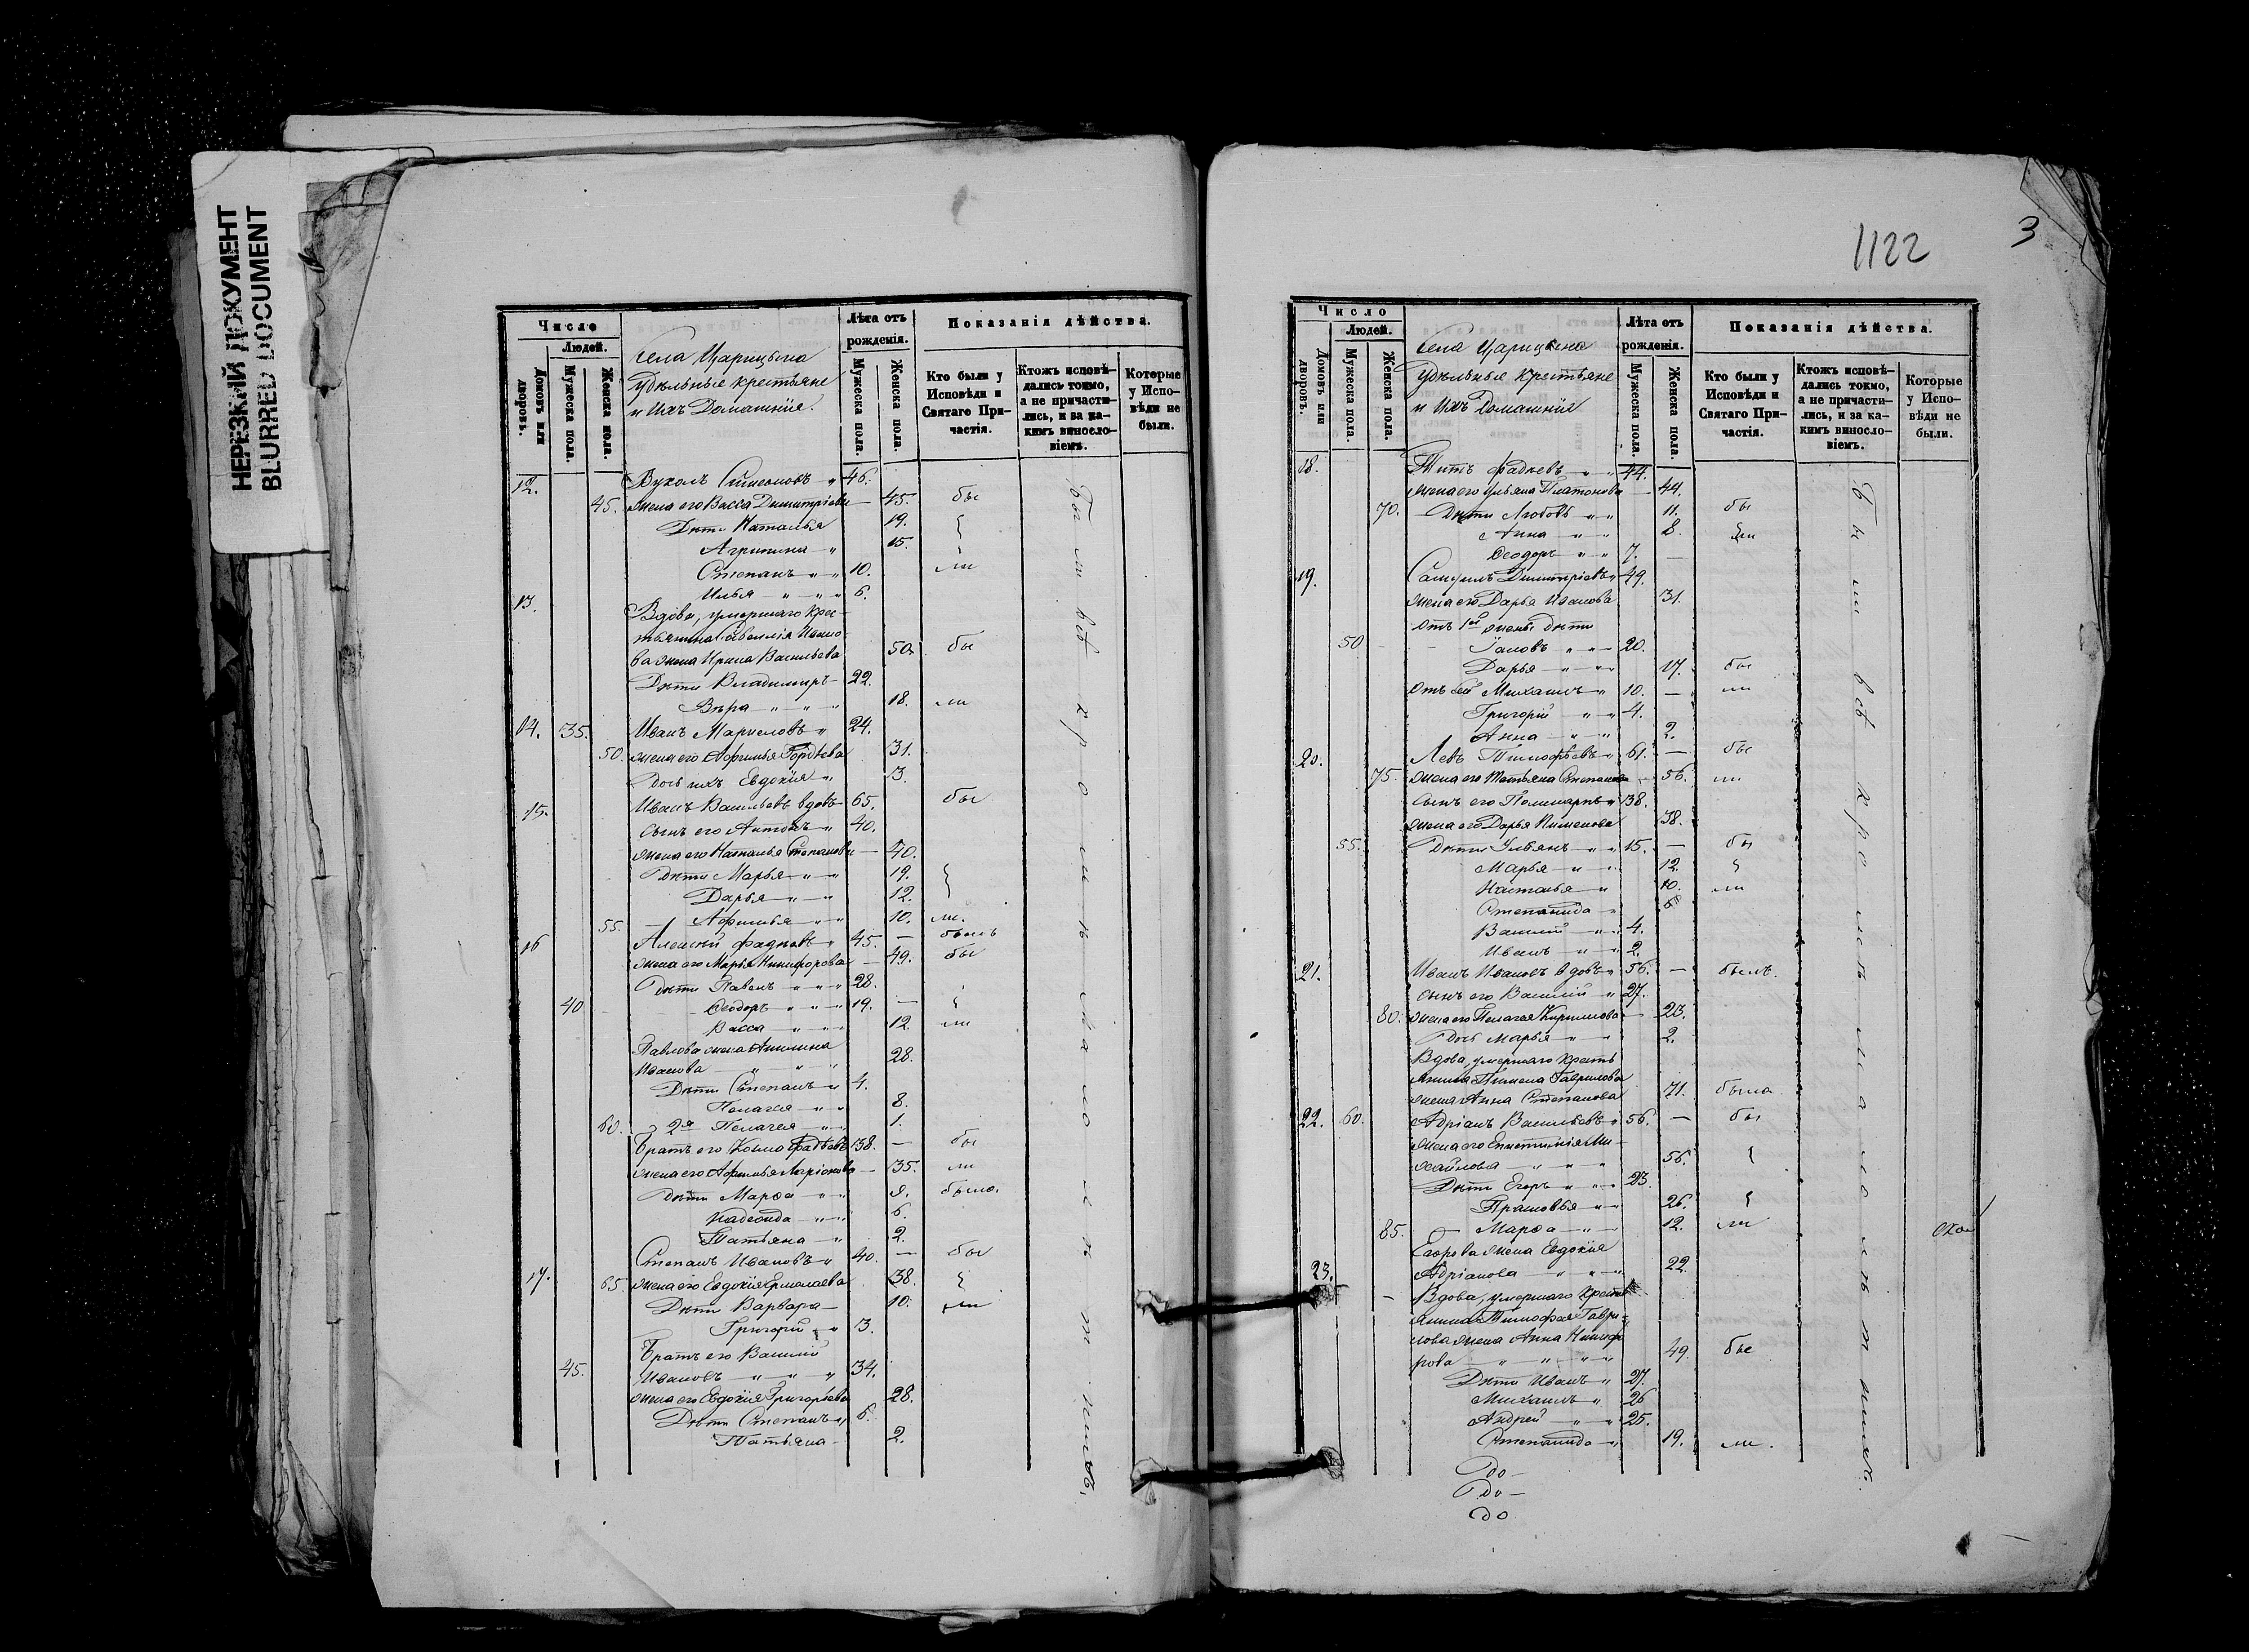 НЕРЕЗКИЙ ДОКУМЕНТ
BLURRED DOCUMENT
Число
Людей.
Домовъ или дворовъ.
Мужеска пола.
Женска пола.
Села Царицына
Удѣльные крестьяне
и Ихъ Домашнія.
Лѣта отъ рожденія.
Мужеска пола.
Женска пола.
Показанія дѣйства.
Кто были у Исповѣди и Святаго Причастія.
Ктожъ исповѣ-
дались токмо,
а не причасти-
лись, и за ка-
кимъ вinосло-
віемъ.
Которые
у Испо-
вѣди не
были.
12. Вуколъ Симеоновъ " 46.
45. жена его Васса Димитріева — 45. бы
Дѣти Наталья 19.
Агрипина " 15.
Степанъ " " 10. ли
Илья " " " 6.
13. Вдова, умершаго крес-
тьянина Ивано-
ва жена Ирина Васильева 50. бы
Дѣти Владимиръ 22.
Вѣра " " " 18. ли
14. 35. Иванъ " 24.
50. жена его Гордѣева 31.
Дочь ихъ Евдокія " 3.
15. Иванъ Васильевъ вдовъ 65. бы
сынъ его Антонъ " 40.
жена его Наталья Степанова — 40.
Дѣти Марья " " 19.
Дарья " " 12.
55. — Афимья " " 10. ли.
16 Алексѣй Фадѣевъ " 45. — былъ
жена его Марья Никифорова — 49. бы
Дѣти Павелъ " " " 28.
40 Ѳеодоръ " " " 19. —
Васса " " " 12. ли
Павлова жена Акилина
Иванова " " " 28.
Дѣти Степанъ " 4.
Пелагея " " 8.
60. 2я Пелагея " " 1.
Братъ его Козма Фадѣевъ 38. — бы
жена его Афимья Ларіонова — 35. ли
Дѣти Марѳа " " 9. была.
Надежда " " 6.
Татьяна " 2.
17. Степанъ Ивановъ " 40. — бы
65. жена его Евдокія Ермолаева 38.
Дѣти Варвара — 10. ли
Григорій " " 3.
Братъ его Василій
45. Ивановъ " " " " 34.
жена его Евдокія Григорьева 28.
Дѣти Степанъ " 6.
Татьяна 2.
Бы ли всѣ кромѣ малолѣтнихъ.
1122
3
Число
Людей.
Домовъ или дворовъ.
Мужеска пола.
Женска пола.
Села Царицына
Удѣльные Крестьяне
и Ихъ Домашнія
Лѣта отъ рожденія.
Мужеска пола.
Женска пола.
Показанія дѣйства.
Кто были у
Исповѣди и
Святаго При-
частія.
Ктожъ исповѣ-
дались токмо,
а не причасти-
лись, и за ка-
кимъ виносло-
віемъ.
Которые
у Испо-
вѣди не
были.
18. Титъ Фадѣевъ " " 44.
жена его Ульяна Платонова — 44.
70. Дѣти Любовь " " 11. бы
Анна " " 8. ли
Ѳеодоръ " " 7. —
19. Самуилъ Димитріевъ " 49.
жена его Дарья Иванова 31.
Отъ 1ой жены дѣти
50 Іаковъ " " " 20.
Дарья " " " 17. бы
Отъ сей Михаилъ " 10. — ли
Григорій " " 4.
Анна " " 2.
20. Левъ Тимофѣевъ " 61. — бы
75. жена его Татьяна Степанова 56. ли
Сынъ его Поликарпъ " 38.
жена его Дарья Пименова 38.
55. Дѣти Ульянъ " " 15. — бы
Марья " " 12.
Наталья " 10. ли
Степанида " 6
Василій " " 4.
Иванъ " " 2.
21. Иванъ Ивановъ вдовъ " 56. — былъ.
сынъ его Василій " 27.
80. жена его Пелагея Кирилова — 23.
Дочь Марья " " 2.
Вдова, умершаго кресть
янина Пимена Гаврилова
жена Анна Степанова 71. была
22. 60. Адріанъ Васильевъ " 56. — бы
жена его Епистимія Ми-
хайлова " " " 56.
Дѣти Егоръ " " " 23.
Прасковья " " 26.
85. — Марѳа " " 12. ли
Егорова жена Евдокія
Адріанова " " " 22.
23. Вдова, умершаго Кресть
янина Тимофея Гаври-
лова жена Анна Никифо
рова " " " " 49. бы
Дѣти Иванъ " 27.
Михаилъ " 26
Андрей " " 25.
Степанида " 19. ли.
Бы ли всѣ кромѣ малолѣтнихъ.
до —
до —
до